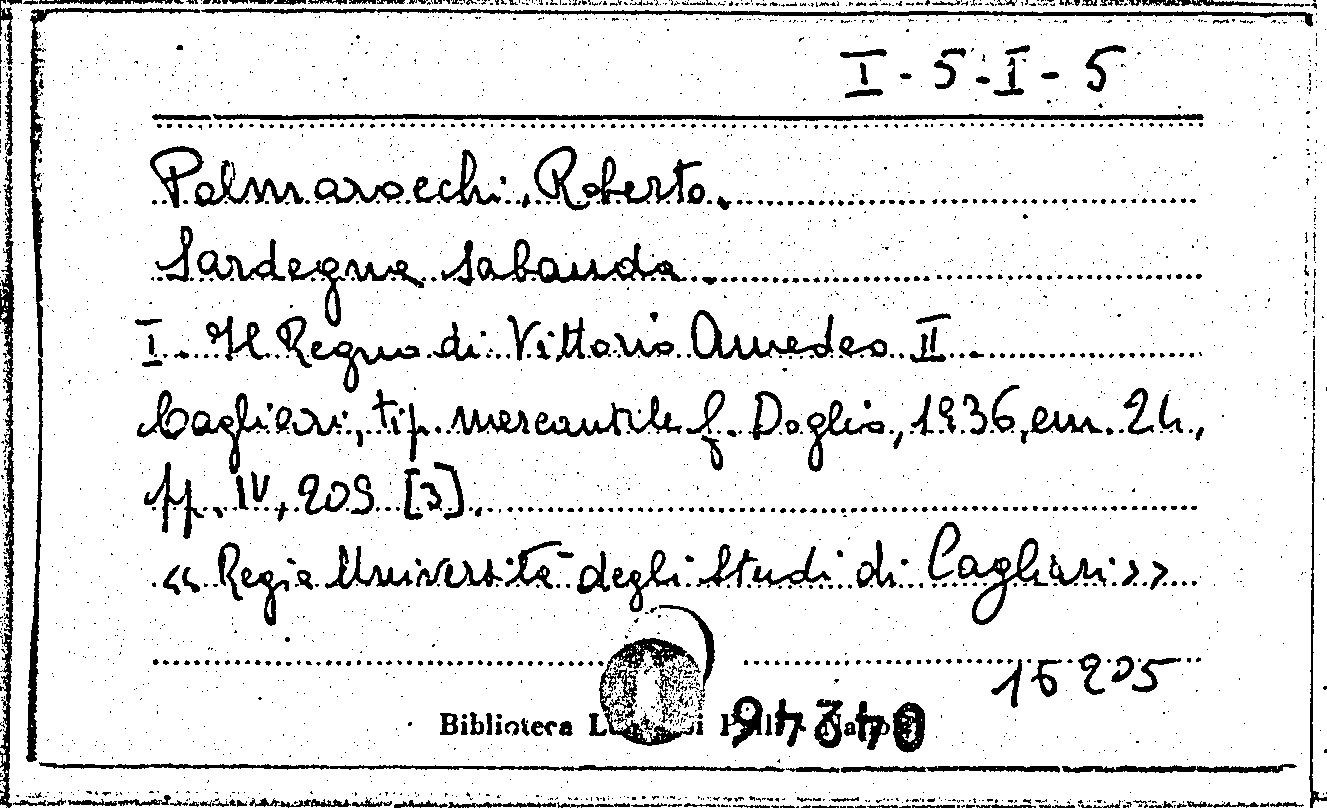 I - 5 - I - 5
Palmarocchi, Roberto.
Sardegna sabauda.
I. Il Regno di Vittorio Amedeo II.
Cagliari, tip. mercantile G. Doglio, 1936, cm. 24,
pp. IV, 209 [3].
<< Regia Università degli Studi di Cagliari >>
16205
Biblioteca
94340